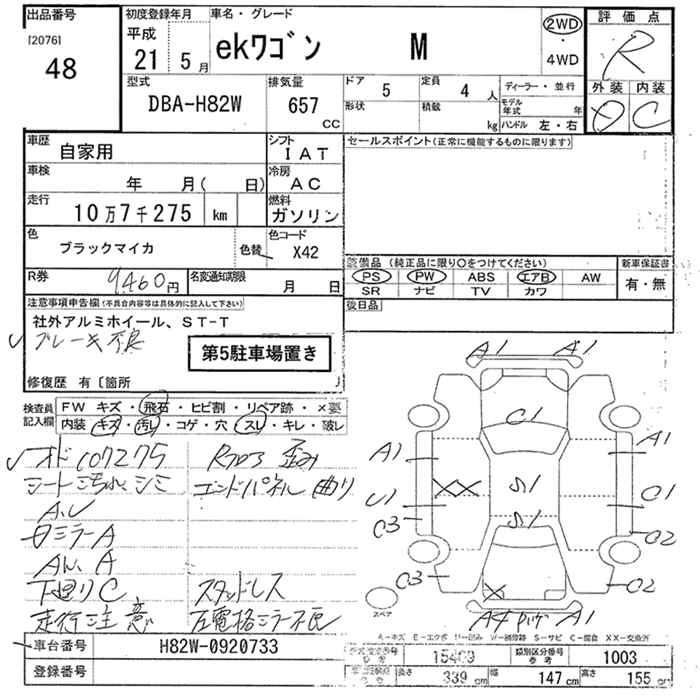 出品番号
[2076]
48
初度登録年月
平成
21 5 月
車名・グレード
ekワゴン M
2WD
・
4WD
評価点
R
外装 内装
D C
型式
DBA-H82W
排気量
657
cc
ドア 5
定員 4 人
形状
積載 kg
ディーラー・並行
モデル年式 年
ハンドル 左・右
車歴
自家用
シフト
IAT
車検
年 月( 日)
冷房
AC
走行
10万7千275 km
燃料
ガソリン
色
ブラックマイカ
色替
色コード
X42
R券 9460円
名変通知期限 月 日
セールスポイント(正常に機能するものに限ります)
装備品 (純正品に限り○をつけてください)
PS PW ABS エアB AW
SR ナビ TV カワ
新車保証書
有・無
後日品
注意事項申告欄(不具合内容等は具体的に記入して下さい)
社外アルミホイール、ST-T
ブレーキ不良
第5駐車場置き
修復歴 有〔箇所
検査員
記入欄
FW キズ・飛石・ヒビ割・リペア跡・×要
内装・キズ・汚レ・コゲ・穴・スレ・キレ・破レ
オド107275
シート汚れ、シミ
A、U
下廻りC
走行注意
Rフロア歪み
エンドパネル曲り
スタッドレス
左電格ミラー不良
A1 A1
C1
A1 A1
S1
U1 C1
S1
C3 C2
C3 C2
A4 A1
スペア
A-キズ E-エクボ U-凹み W-補修跡 S-サビ C-腐食 XX-交換済
車台番号 H82W-0920733
登録番号
15409
類別区分番号
参考
1003
長さ 339 cm
幅 147 cm
高さ 155 cm